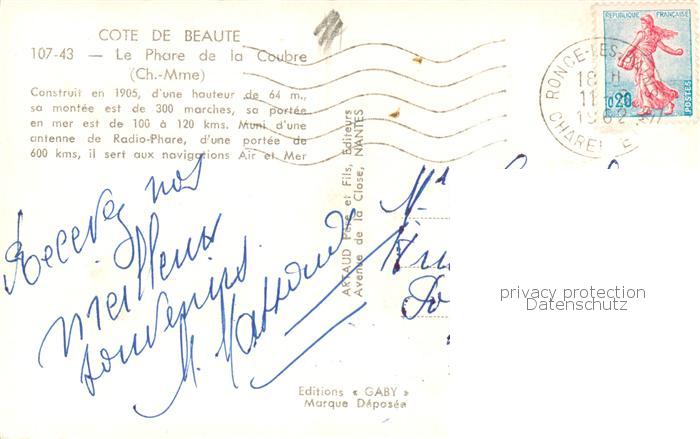 COTE DE BEAUTE
107-43 — Le Phare de la Coubre
(Ch.-Mme)
Construit en 1905, d'une hauteur de 64 m.,
sa montée est de 300 marches, sa portée
en mer est de 100 à 120 kms. Muni d'une
antenne de Radio-Phare, d'une portée de
600 kms, il sert aux navigations Air et Mer
Recevez nos
meilleurs
souvenirs.
ARTAUD Père et Fils, Editeurs
Avenue de la Close, NANTES
Editions « GABY »
Marque Déposée
REPUBLIQUE FRANÇAISE
0,20
POSTES
RONCE-LES-
18 H
11
CHARENTE
privacy protection
Datenschutz